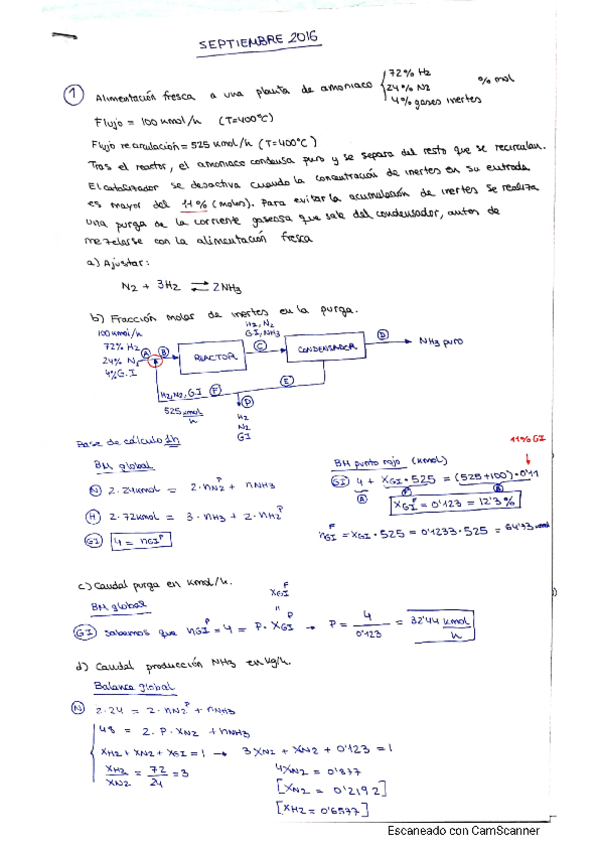 SEPTIEMBRE 2016
① Alimentación fresca a una planta de amoniaco { 72% H2
24% N2 % mol
4% gases inertes
Flujo = 100 kmol/h (T=400°C)
Flujo recirculación = 525 kmol/h (T=400°C)
Tras el reactor, el amoniaco condensa puro y se separa del resto que se recirculan.
El catalizador se desactiva cuando la concentración de inertes en su entrada
es mayor del 11% (moles). Para evitar la acumulación de inertes se realiza
una purga de la corriente gaseosa que sale del condensador, antes de
mezclarse con la alimentación fresca
a) Ajustar:
N2 + 3H2 ⇄ 2NH3
b) Fracción molar de inertes en la purga.
100 kmol/h
72% H2
24% N2
4% G.I
A
B
REACTOR
H2, N2
G.I, NH3
C
CONDENSADOR
D
NH3 puro
E
H2, N2, G.I
F
525 kmol/h
P
H2
N2
GI
Base de cálculo 1h
BM global
(N) 2·24kmol = 2·nN2^P + nNH3
(H) 2·72kmol = 3·nH3 + 2·nH2^P
(GI) 4 = nGI^P
11% GI
BM punto rojo (kmol)
(GI) 4 + XGI·525 = (525+100)·0'11
A F B
XGI^F = 0'123 = 12'3%
nGI^F = XGI·525 = 0'1233·525 = 64'73 kmol
c) Caudal purga en kmol/h.
BM global
XGI^F
"
(GI) sabemos que nGI^P = 4 = P·XGI^P → P = 4/0'123 = 32'44 kmol/h
d) Caudal producción NH3 en kg/h.
Balance global
(N) 2·24 = 2·nN2^P + nNH3
48 = 2·P·XN2 + nNH3
XH2 + XN2 + XGI = 1 → 3XN2 + XN2 + 0'123 = 1
XH2/XN2 = 72/24 = 3
4XN2 = 0'877
[XN2 = 0'2192]
[XH2 = 0'6577]
Escaneado con CamScanner